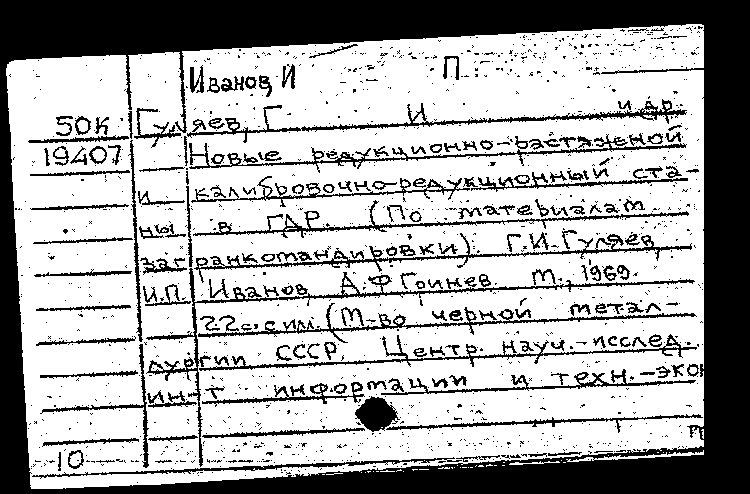 Иванов, И П
50К Гуляев, Г И и др.
19407 Новые редукционно-растяжной
и калибровочно-редукционный ста-
ны в ГДР. (По материалам
загранкомандировки) Г.И. Гуляев,
И.П. Иванов, А.Ф Гринев. М., 1969.
22с. с ил. (М-во черной метал-
лургии СССР. Центр. науч.-исслед.
ин-т информации и техн.-экон
10